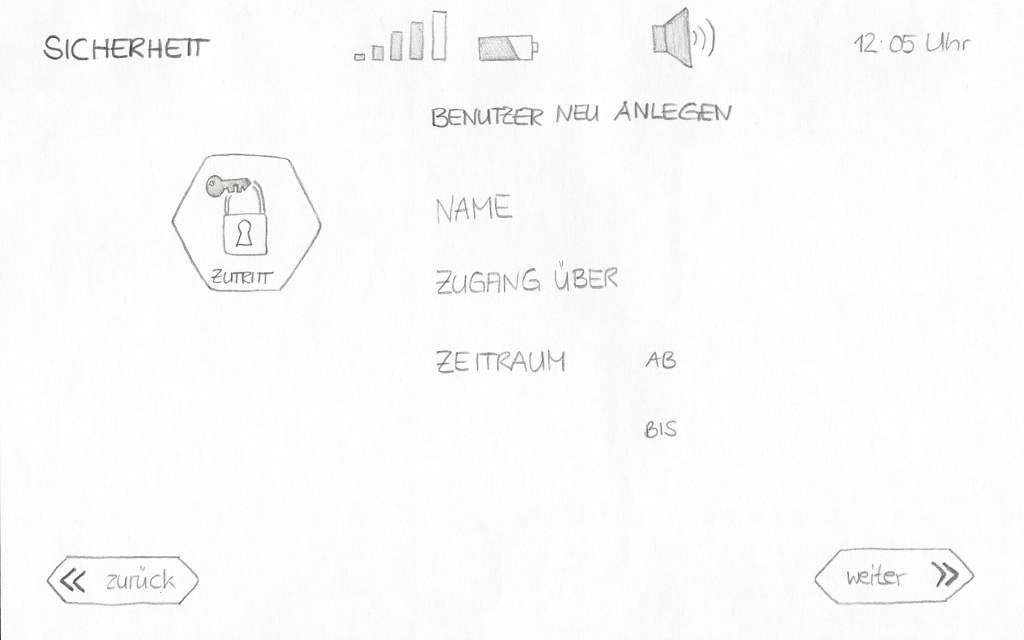 SICHERHEIT
12:05 Uhr
BENUTZER NEU ANLEGEN
NAME
ZUTRITT
ZUGANG ÜBER
ZEITRAUM AB
BIS
« zurück
weiter »